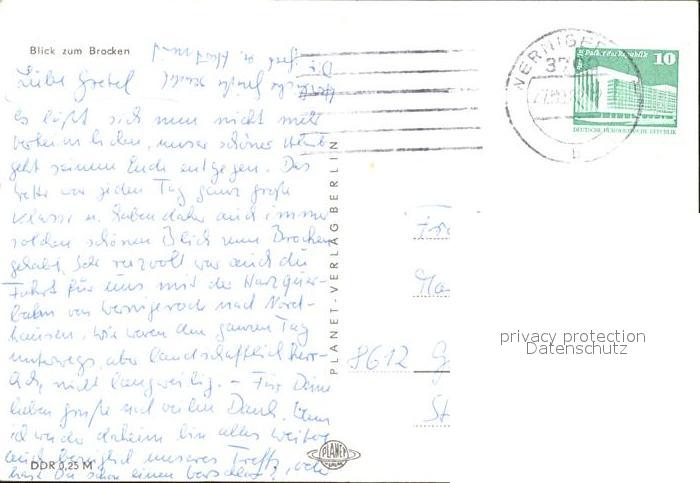 Blick zum Brocken
Liebe Gretel
Es läßt sich nun nicht mehr
verheimlichen, unser schöner Urlaub
geht seinem Ende entgegen. Das
Wetter war jeden Tag ganz große
Klasse u. haben daher auch immer
solchen schönen Blick zum Brocken
gehabt. Sehr reizvoll war auch die
Fahrt für uns mit der Harzquer-
bahn von Wernigerode nach Nord-
hausen. Wir waren den ganzen Tag
unterwegs, aber landschaftlich herr-
lich, nicht langweilig. – Für Deine
lieben Grüße noch vielen Dank. Wenn
ich wieder daheim bin alles weitere
auch bezüglich unseres Treffs,
hast Du schon einen Vorschlag?
DDR 0,25 M
PLANET-VERLAG BERLIN
PLANET
WERNIGE
3700
b
Palast der Republik
10
DEUTSCHE DEMOKRATISCHE REPUBLIK
8612 G
St
privacy protection
Datenschutz